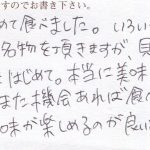 すのでお書き下さい。
めて食べました。いろい
名物を頂きますが、貝
はじめて。本当に美味
また機会あれば食べ
味が楽しめるのが良い